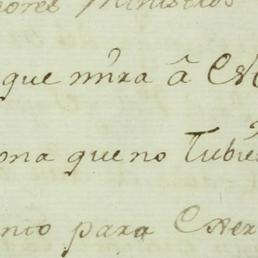 ores Ministros
que mira â
ona que no Tubie
nto para